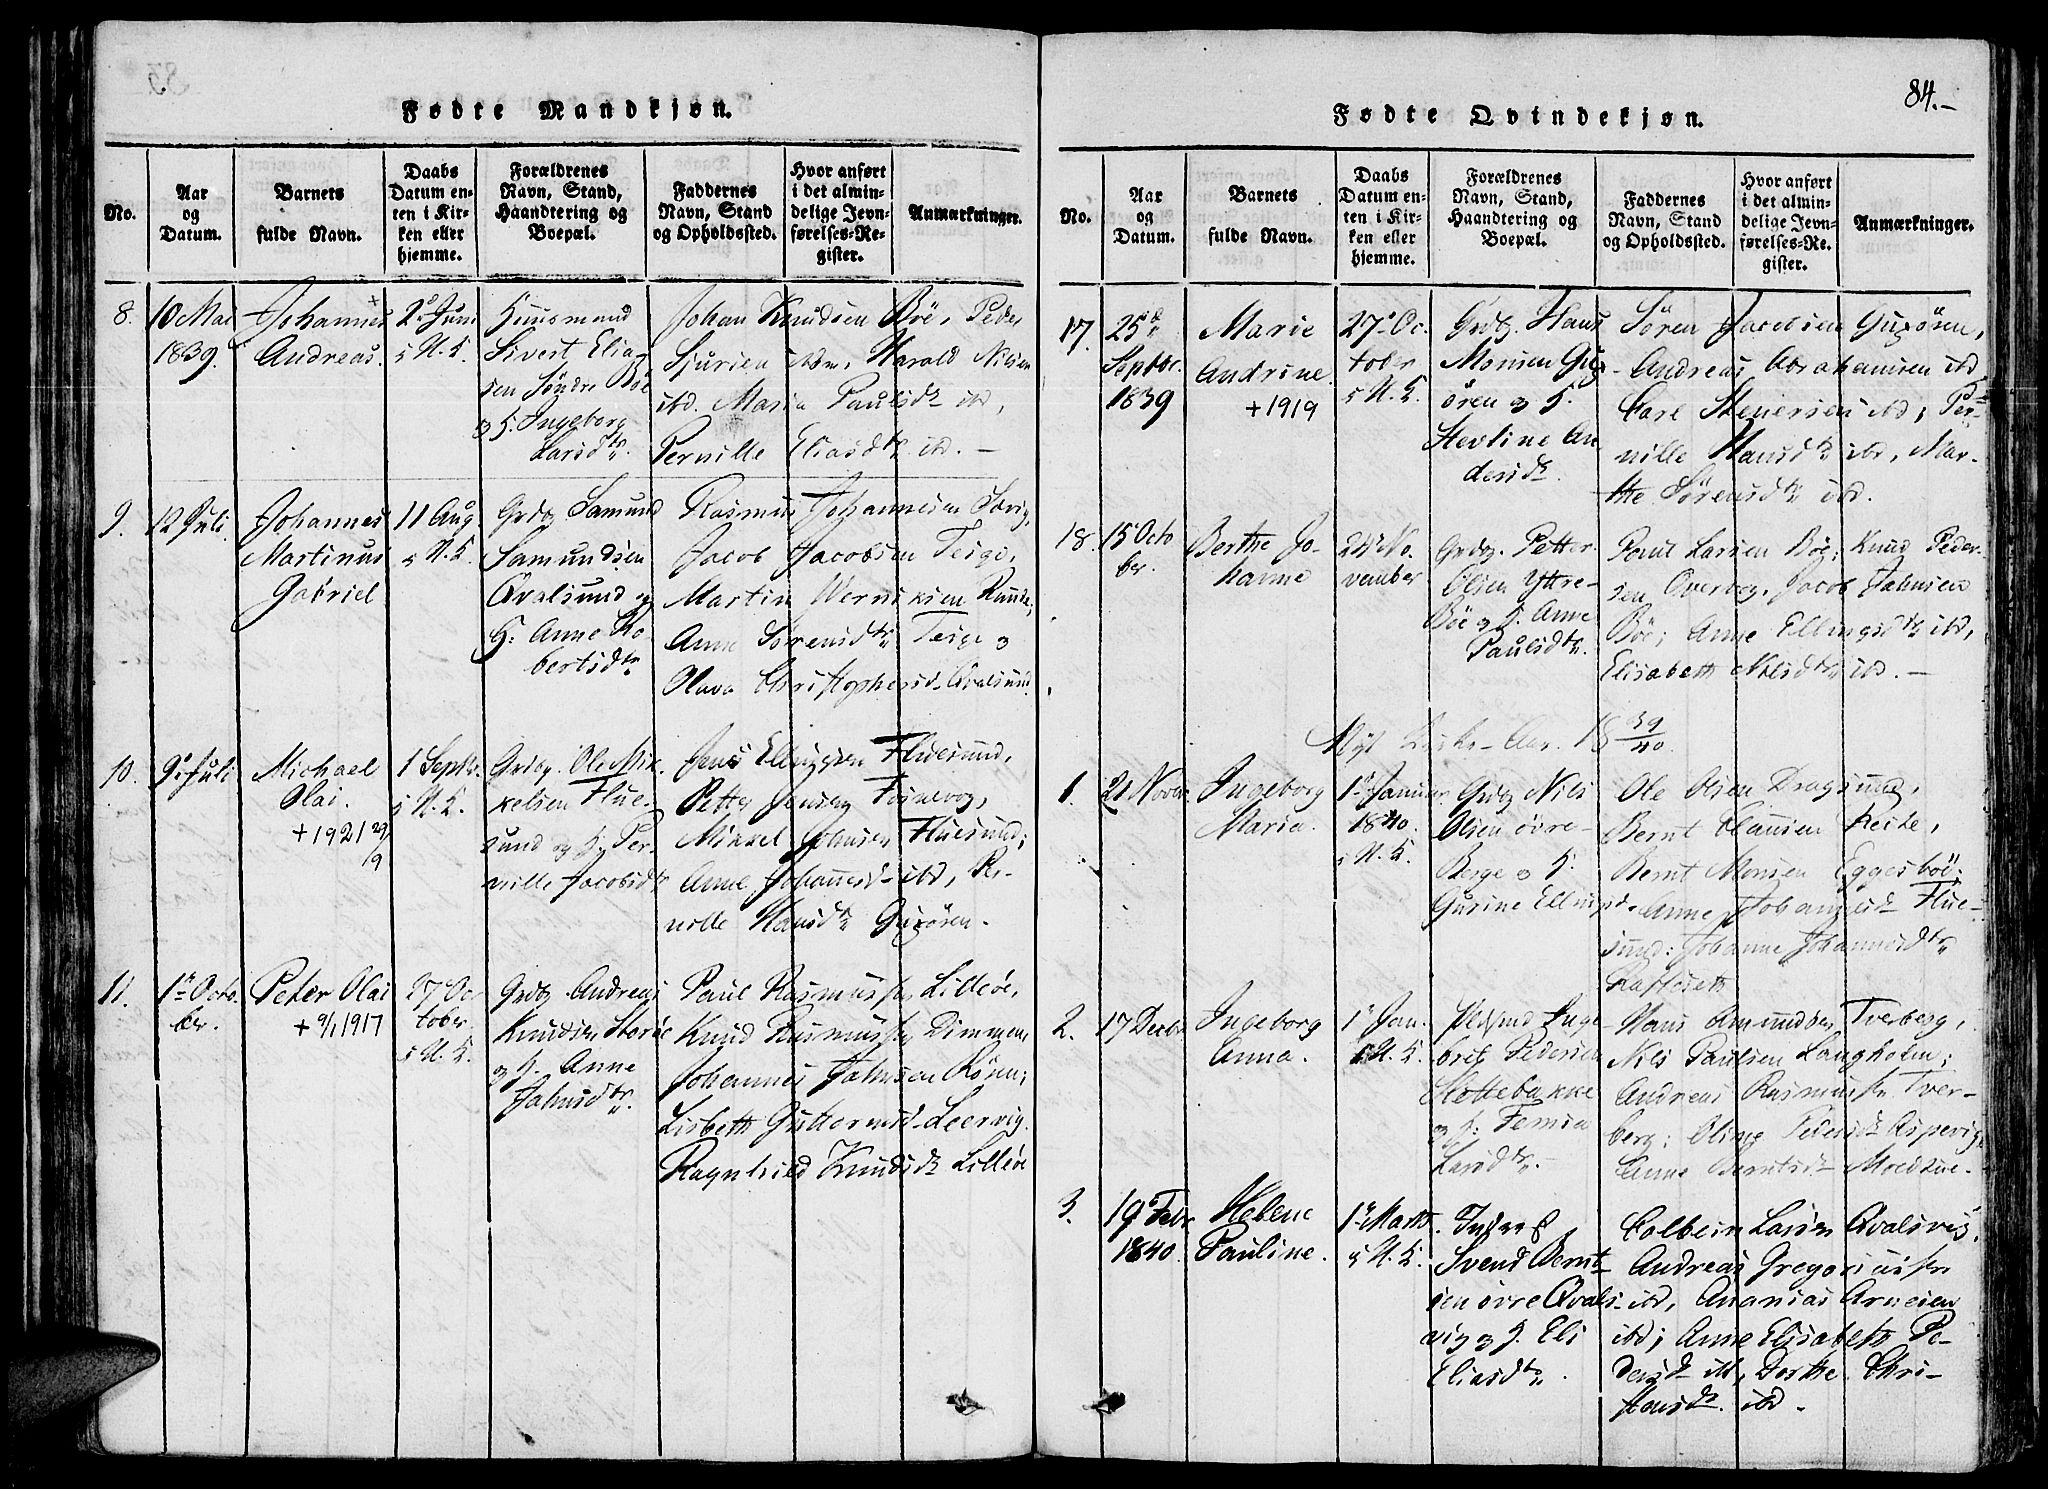 84.-
Fødte Mandkjøn.
No.
Aar
og
Datum.
Barnets
fulde Navn.
Daabs
Datum en-
ten i Kir-
ken eller
hjemme.
Forældrenes
Navn, Stand,
Haandtering og
Boepæl.
Faddernes
Navn, Stand
og Opholdssted.
Hvor anført
i det almin-
delige Jevn-
førelses-Re-
gister.
Anmærkninger.
8.
10 Mai
1839.
Johannes +
Andreas.
2. Juni
i H. K.
Huusmand
Sivert Elia-
sen Søndre Böe
og H. Ingeborg
Larsdtr.
Johan Knudsen Böe, Peder
Sjursen ibd., Harald Nilsen
ibd. Maria Paulsdtr ibd,
Pernille Eliasdtr ibd. -
9.
12 Juli
Johannes
Martinus
Gabriel
11 Aug.
i H. K.
Grdbg. Samund
Samundsen
Qvalsund og
H: Anne Ro-
bertsdtr
Rasmus Johannesen
Jacob Jacobsen Teige,
Martin Runde,
Anne Sörensdtr Teige og
Olava Christophersd. Qvalsund.
10.
9 Juli
Michael
Olai.
+ 1921 29/9
1 Septbr.
i H. K.
Grdbg. Ole Mik-
kelsen Flue-
sund og H. Per-
nille Jacobsdtr
Jens Ellingsen Fluesund,
Petter Jensen Fosnevog,
Mikkel Johnsen Fluesund;
Anne Johannesd. ibd, Per-
nille Hansdtr Gurzören.
11.
1. Octo-
ber.
Peter Olai
+ 9/1 1917
27 Oc-
tober
i H. K.
Grdbg Andreas
Knudsen Storöe
og H. Anne
Jahnsdtr.
Paul Rasmussen Lilleöe,
Knud Rasmussen Dimmen,
Johannes Jahnsen Röine;
Lisbeth Guttormsd. Leervig.
Ragnhild Knudsdtr Lilleöe
Fødte Qvindekjøn.
No.
Aar
og
Datum.
Barnets
fulde Navn.
Daabs
Datum en-
ten i Kir-
ken eller
hjemme.
Forældrenes
Navn, Stand,
Haandtering og
Boepæl.
Faddernes
Navn, Stand
og Opholdssted.
Hvor anført
i det almin-
delige Jevn-
førelses-Re-
gister.
Anmærkninger.
17.
25
Septbr.
1839
Marie
Andrine.
+ 1919
27 Oc-
tober
i H. K.
Grdbg. Hans
Monsen
ören og H.
Stevline An-
dersdtr.
Sören Jacobsen
Andreas Abrahamsen ibd
Carl Stenersen ibd; Per-
nille Hansdtr ibd, Mar-
the Sörensdtr ibd.
18.
15 Octo-
ber.
Berthe Jo-
hanne
24 No-
vember
Grdbg. Petter
Olsen Yttre-
Böe og H. Anne
Paulsdtr.
Paul Larsen Böe; Knud Peder-
sen Overberg, Jacob Jahnsen
Böe; Anne Ellingsdtr ibd,
Elisabeth Nilsdtr ibd. -
Nyt Kirke-Aar. 18 39/40.
1.
21 Novbr.
Ingeborg
Maria.
1. Januar
1840.
i H. K.
Grdbg Nils
Olsen övre-
Berge og H.
Gurine Ellingsd.
Ole Olsen Dragsund,
Bernt Clausen
Bernt Monsen Eggesböe;
Anne Johannesd. Flue-
sund: Johanne Johannesdtr
2.
17 Decbr
Ingeborg
Anna.
1. Jan.
i H. K.
Inge-
brit Pedersen
Holtebakke
og H: Femia
Larsdtr.-
Hans Amundsen Tverberg,
Nils Paulsen Langholm;
Andreas Rasmussen Tver-
berg; Oline Pedersdtr Aspevig,
Anne Berntsdtr
3.
19 Febr.
1840.
Helene
Pauline.
1. Marts
i H. K.
Svend Bernt-
sen övre Qvals-
vig og H. Eli
Eliasdtr.
Colbein Larsen Qvalsvig.
Andreas Gregoriussen
ibd, Ananias Arnesen
ibd; Anne Elisabeth Pe-
dersdtr ibd, Dorthe Chri-
stensdtr. ibd.